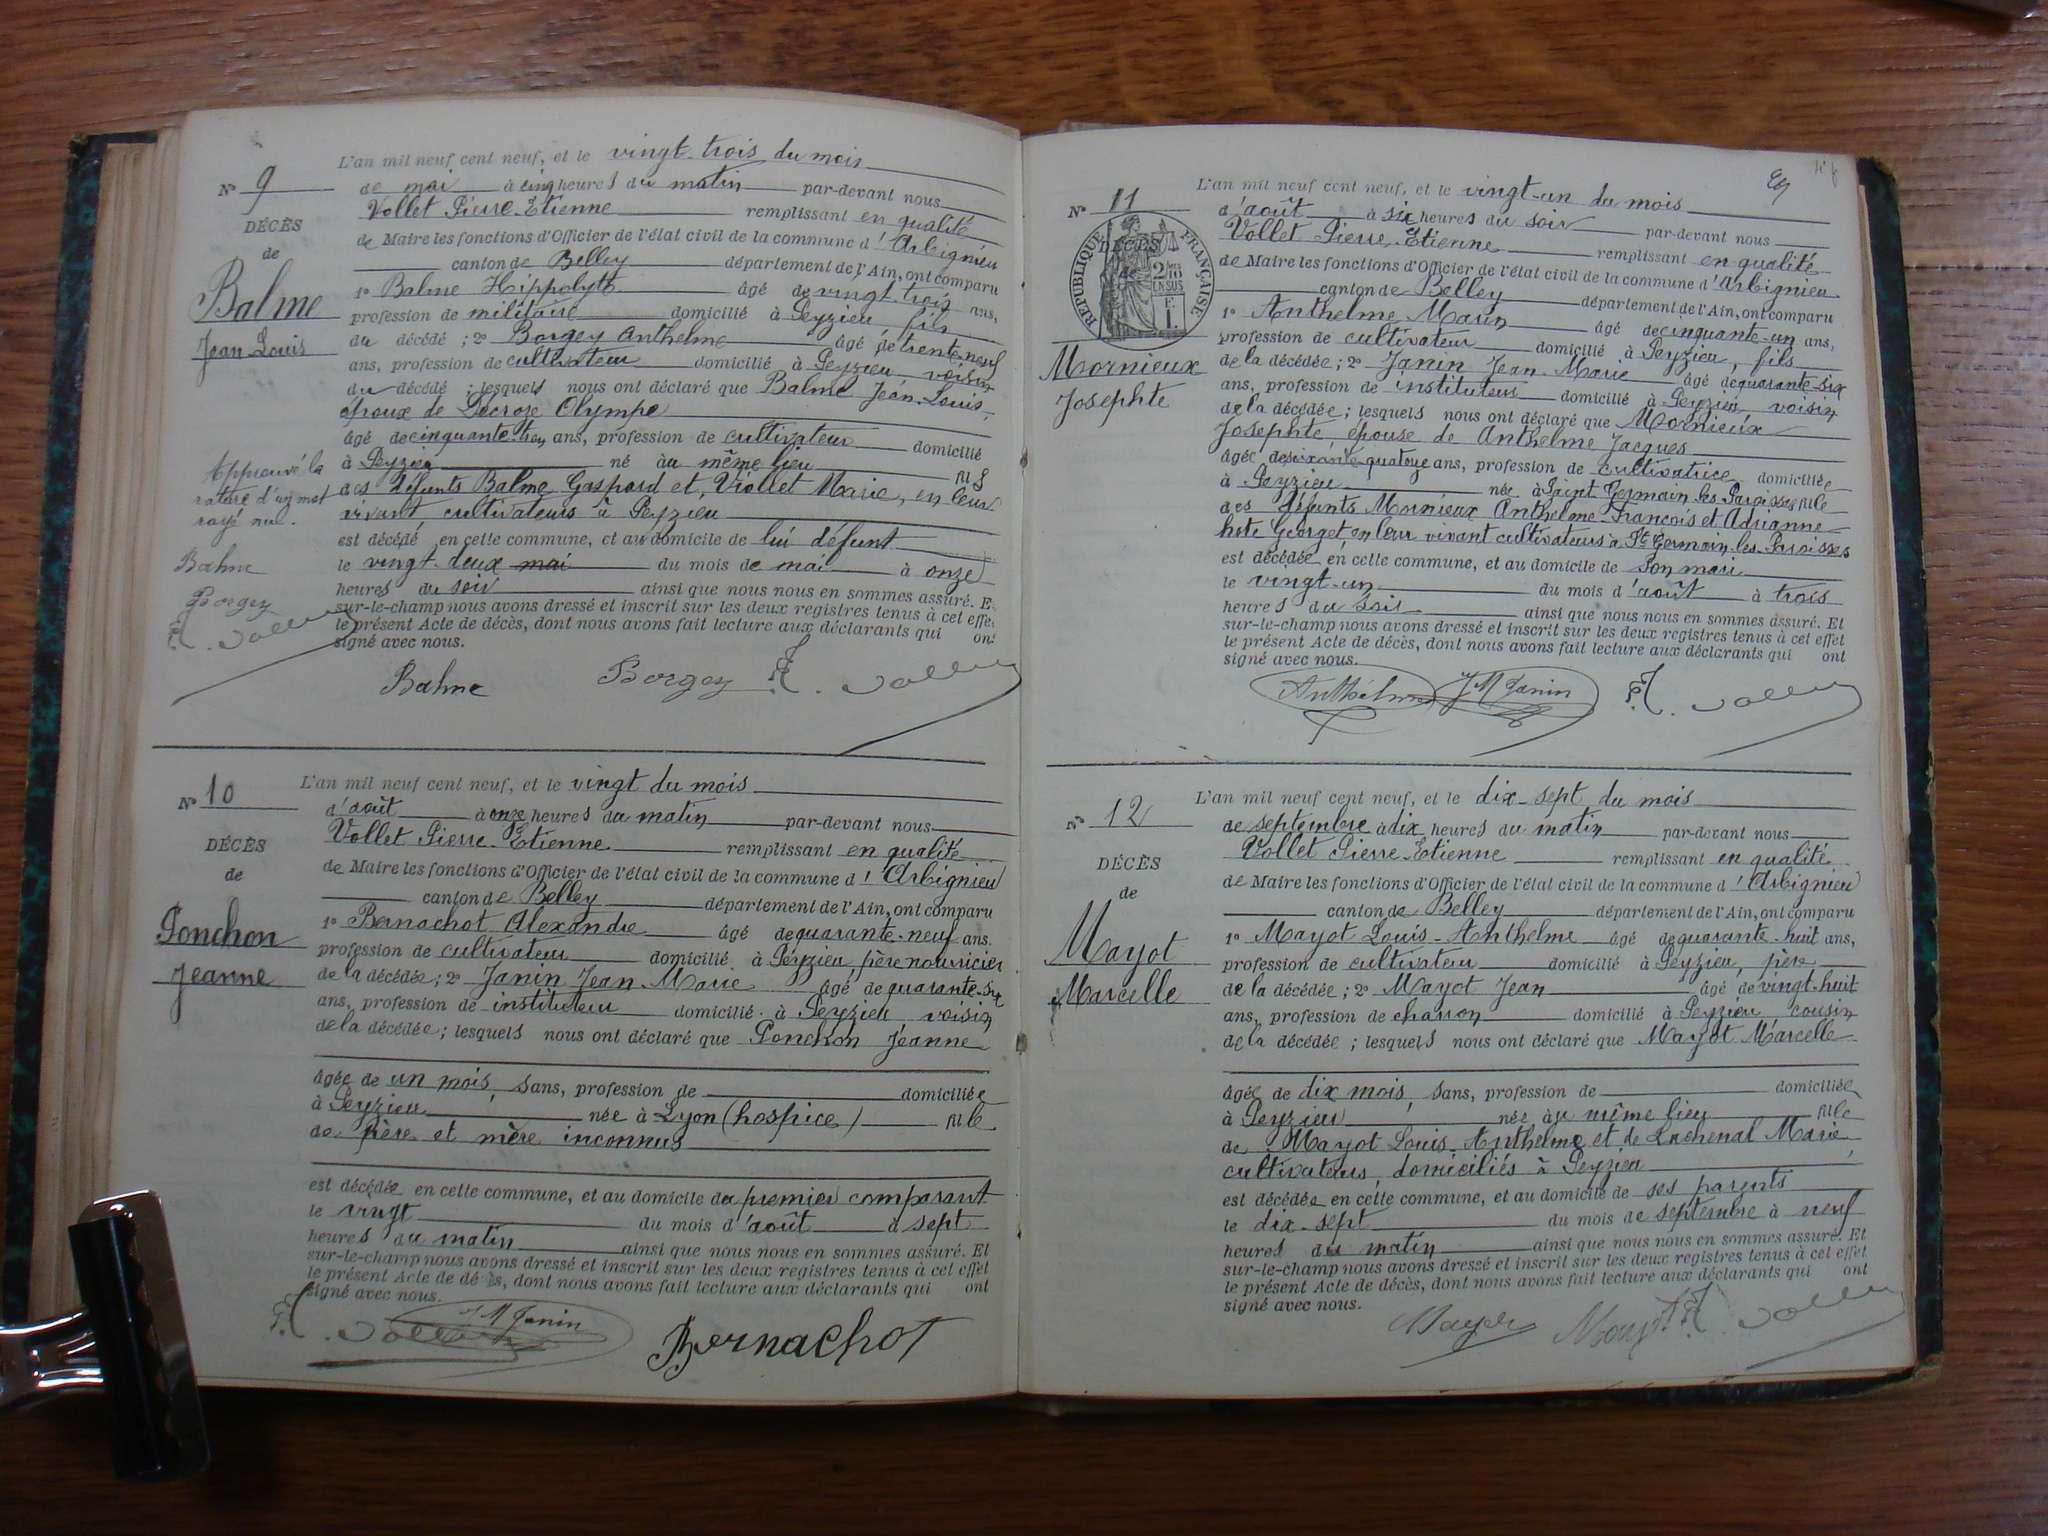 L'an mil neuf cent neuf, et le vingt-trois du mois
N° 9
de mai à cinq heures du matin par-devant nous
Vollet Pierre-Etienne remplissant en qualité
DÉCÈS
de Maire les fonctions d'Officier de l'état civil de la commune d'Arbignieu
de
canton de Belley département de l'Ain, ont comparu
Balme
1° Balme Hippolyte âgé de vingt-trois ans,
profession de militaire domicilié à Peyzieu, fils
Jean Louis
du décédé ; 2° Borgey Anthelme âgé de trente-neuf
ans, profession de cultivateur domicilié à Peyzieu voisin
du décédé ; lesquels nous ont déclaré que Balme Jean-Louis,
époux de Decroze Olympe
âgé de cinquante-trois ans, profession de cultivateur domicilié
à Peyzieu né au même lieu fils
des défunts Balme Gaspard et, Viollet Marie, en leur
vivant cultivateurs à Peyzieu
Approuvé la
rature d'un mot
rayé nul.
Balme
Borgey
P.E. Vollet
est décédé en cette commune, et au domicile de lui défunt
le vingt-deux mai du mois de mai à onze
heures du soir ainsi que nous nous en sommes assuré. Et
sur-le-champ nous avons dressé et inscrit sur les deux registres tenus à cet effet
le présent Acte de décès, dont nous avons fait lecture aux déclarants qui ont
signé avec nous.
Balme Borgey P.E. Vollet
L'an mil neuf cent neuf, et le vingt du mois
N° 10
d'août à onze heures du matin par-devant nous
Vollet Pierre-Etienne remplissant en qualité
DÉCÈS
de Maire les fonctions d'Officier de l'état civil de la commune d'Arbignieu
de
canton de Belley département de l'Ain, ont comparu
Ponchon
1° Bernachot Alexandre âgé de quarante-neuf ans.
profession de cultivateur domicilié à Peyzieu, père nourricier
Jeanne
de la décédée ; 2° Janin Jean-Marie âgé de quarante-six
ans, profession de instituteur domicilié à Peyzieu voisin
de la décédée ; lesquels nous ont déclaré que Ponchon Jeanne
âgée de un mois, sans, profession de domiciliée
à Peyzieu née à Lyon (hospice) fille
de père et mère inconnus
est décédée en cette commune, et au domicile du premier comparant
le vingt du mois d'août à sept
heures du matin ainsi que nous nous en sommes assuré. Et
sur-le-champ nous avons dressé et inscrit sur les deux registres tenus à cet effet
le présent Acte de décès, dont nous avons fait lecture aux déclarants qui ont
signé avec nous.
P.E. Vollet J M Janin Bernachot
L'an mil neuf cent neuf, et le vingt-un du mois
N° 11
d'août à six heures du soir par-devant nous
Vollet Pierre-Etienne remplissant en qualité
DÉCÈS
RÉPUBLIQUE FRANÇAISE
2 10es EN SUS
de Maire les fonctions d'Officier de l'état civil de la commune d'Arbignieu
canton de Belley département de l'Ain, ont comparu
1° Anthelme Marin âgé de cinquante-un ans,
profession de cultivateur domicilié à Peyzieu, fils
Mornieux
Josephte
de la décédée ; 2° Janin Jean-Marie âgé de quarante-six
ans, profession de instituteur domicilié à Peyzieu, voisin
de la décédée ; lesquels nous ont déclaré que Mornieux
Josephte, épouse de Anthelme Jacques
âgée de soixante-quatorze ans, profession de cultivatrice domiciliée
à Peyzieu née à Saint Germain-les-Paroisses fille
des défunts Mornieux Anthelme-François et Adrianne-
hote Georget, en leur vivant cultivateurs à St Germain-les-Paroisses
est décédée en cette commune, et au domicile de son mari
le vingt-un du mois d'août à trois
heures du soir ainsi que nous nous en sommes assuré. Et
sur-le-champ nous avons dressé et inscrit sur les deux registres tenus à cet effet
le présent Acte de décès, dont nous avons fait lecture aux déclarants qui ont
signé avec nous.
Anthelme J M Janin P.E. Vollet
L'an mil neuf cent neuf, et le dix-sept du mois
N° 12
de septembre à dix heures du matin par-devant nous
Vollet Pierre-Etienne remplissant en qualité
DÉCÈS
de Maire les fonctions d'Officier de l'état civil de la commune d'Arbignieu
de
canton de Belley département de l'Ain, ont comparu
Mayot
1° Mayot Louis-Anthelme âgé de quarante-huit ans,
profession de cultivateur domicilié à Peyzieu, père
Marcelle
de la décédée ; 2° Mayot Jean âgé de vingt-huit
ans, profession de charron domicilié à Peyzieu, cousin
de la décédée ; lesquels nous ont déclaré que Mayot Marcelle
âgée de dix mois, sans, profession de domiciliée
à Peyzieu née au même lieu fille
de Mayot Louis-Anthelme et de Lachenal Marie
cultivateurs, domiciliés à Peyzieu
est décédée en cette commune, et au domicile de ses parents
le dix-sept du mois de septembre à neuf
heures du matin ainsi que nous nous en sommes assuré. Et
sur-le-champ nous avons dressé et inscrit sur les deux registres tenus à cet effet
le présent Acte de décès, dont nous avons fait lecture aux déclarants qui ont
signé avec nous.
Mayot Mayot P.E. Vollet